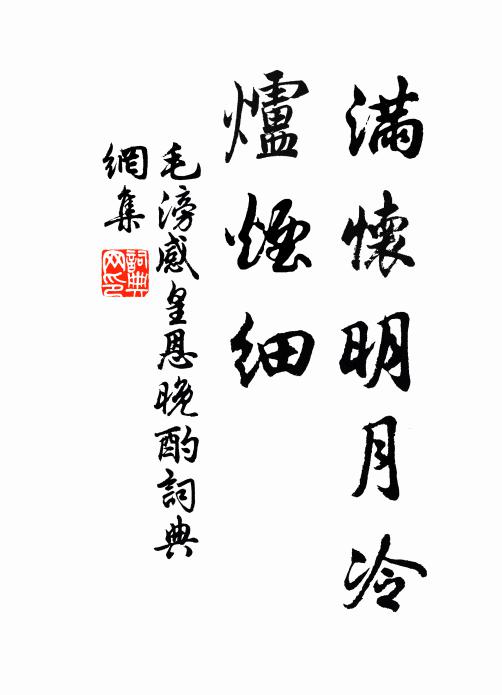 滿懷明月冷
爐煙細
毛滂感皇恩晚酌詞典
網集
詞典
网印